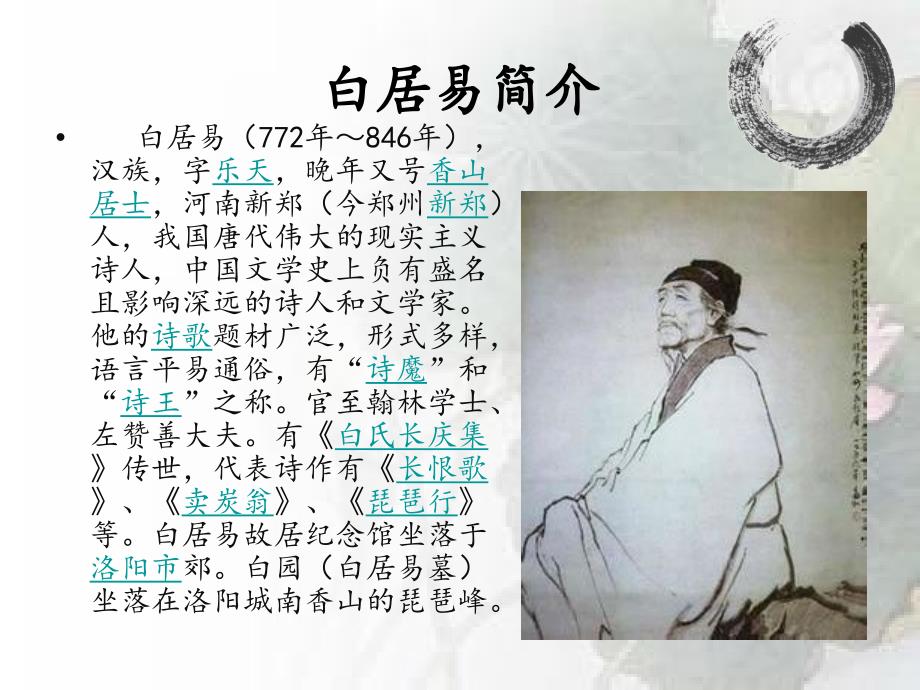 白居易简介
• 白居易（772年～846年），
汉族，字乐天，晚年又号香山
居士，河南新郑（今郑州新郑）
人，我国唐代伟大的现实主义
诗人，中国文学史上负有盛名
且影响深远的诗人和文学家。
他的诗歌题材广泛，形式多样，
语言平易通俗，有“诗魔”和
“诗王”之称。官至翰林学士、
左赞善大夫。有《白氏长庆集
》传世，代表诗作有《长恨歌
》、《卖炭翁》、《琵琶行》
等。白居易故居纪念馆坐落于
洛阳市郊。白园（白居易墓）
坐落在洛阳城南香山的琵琶峰。